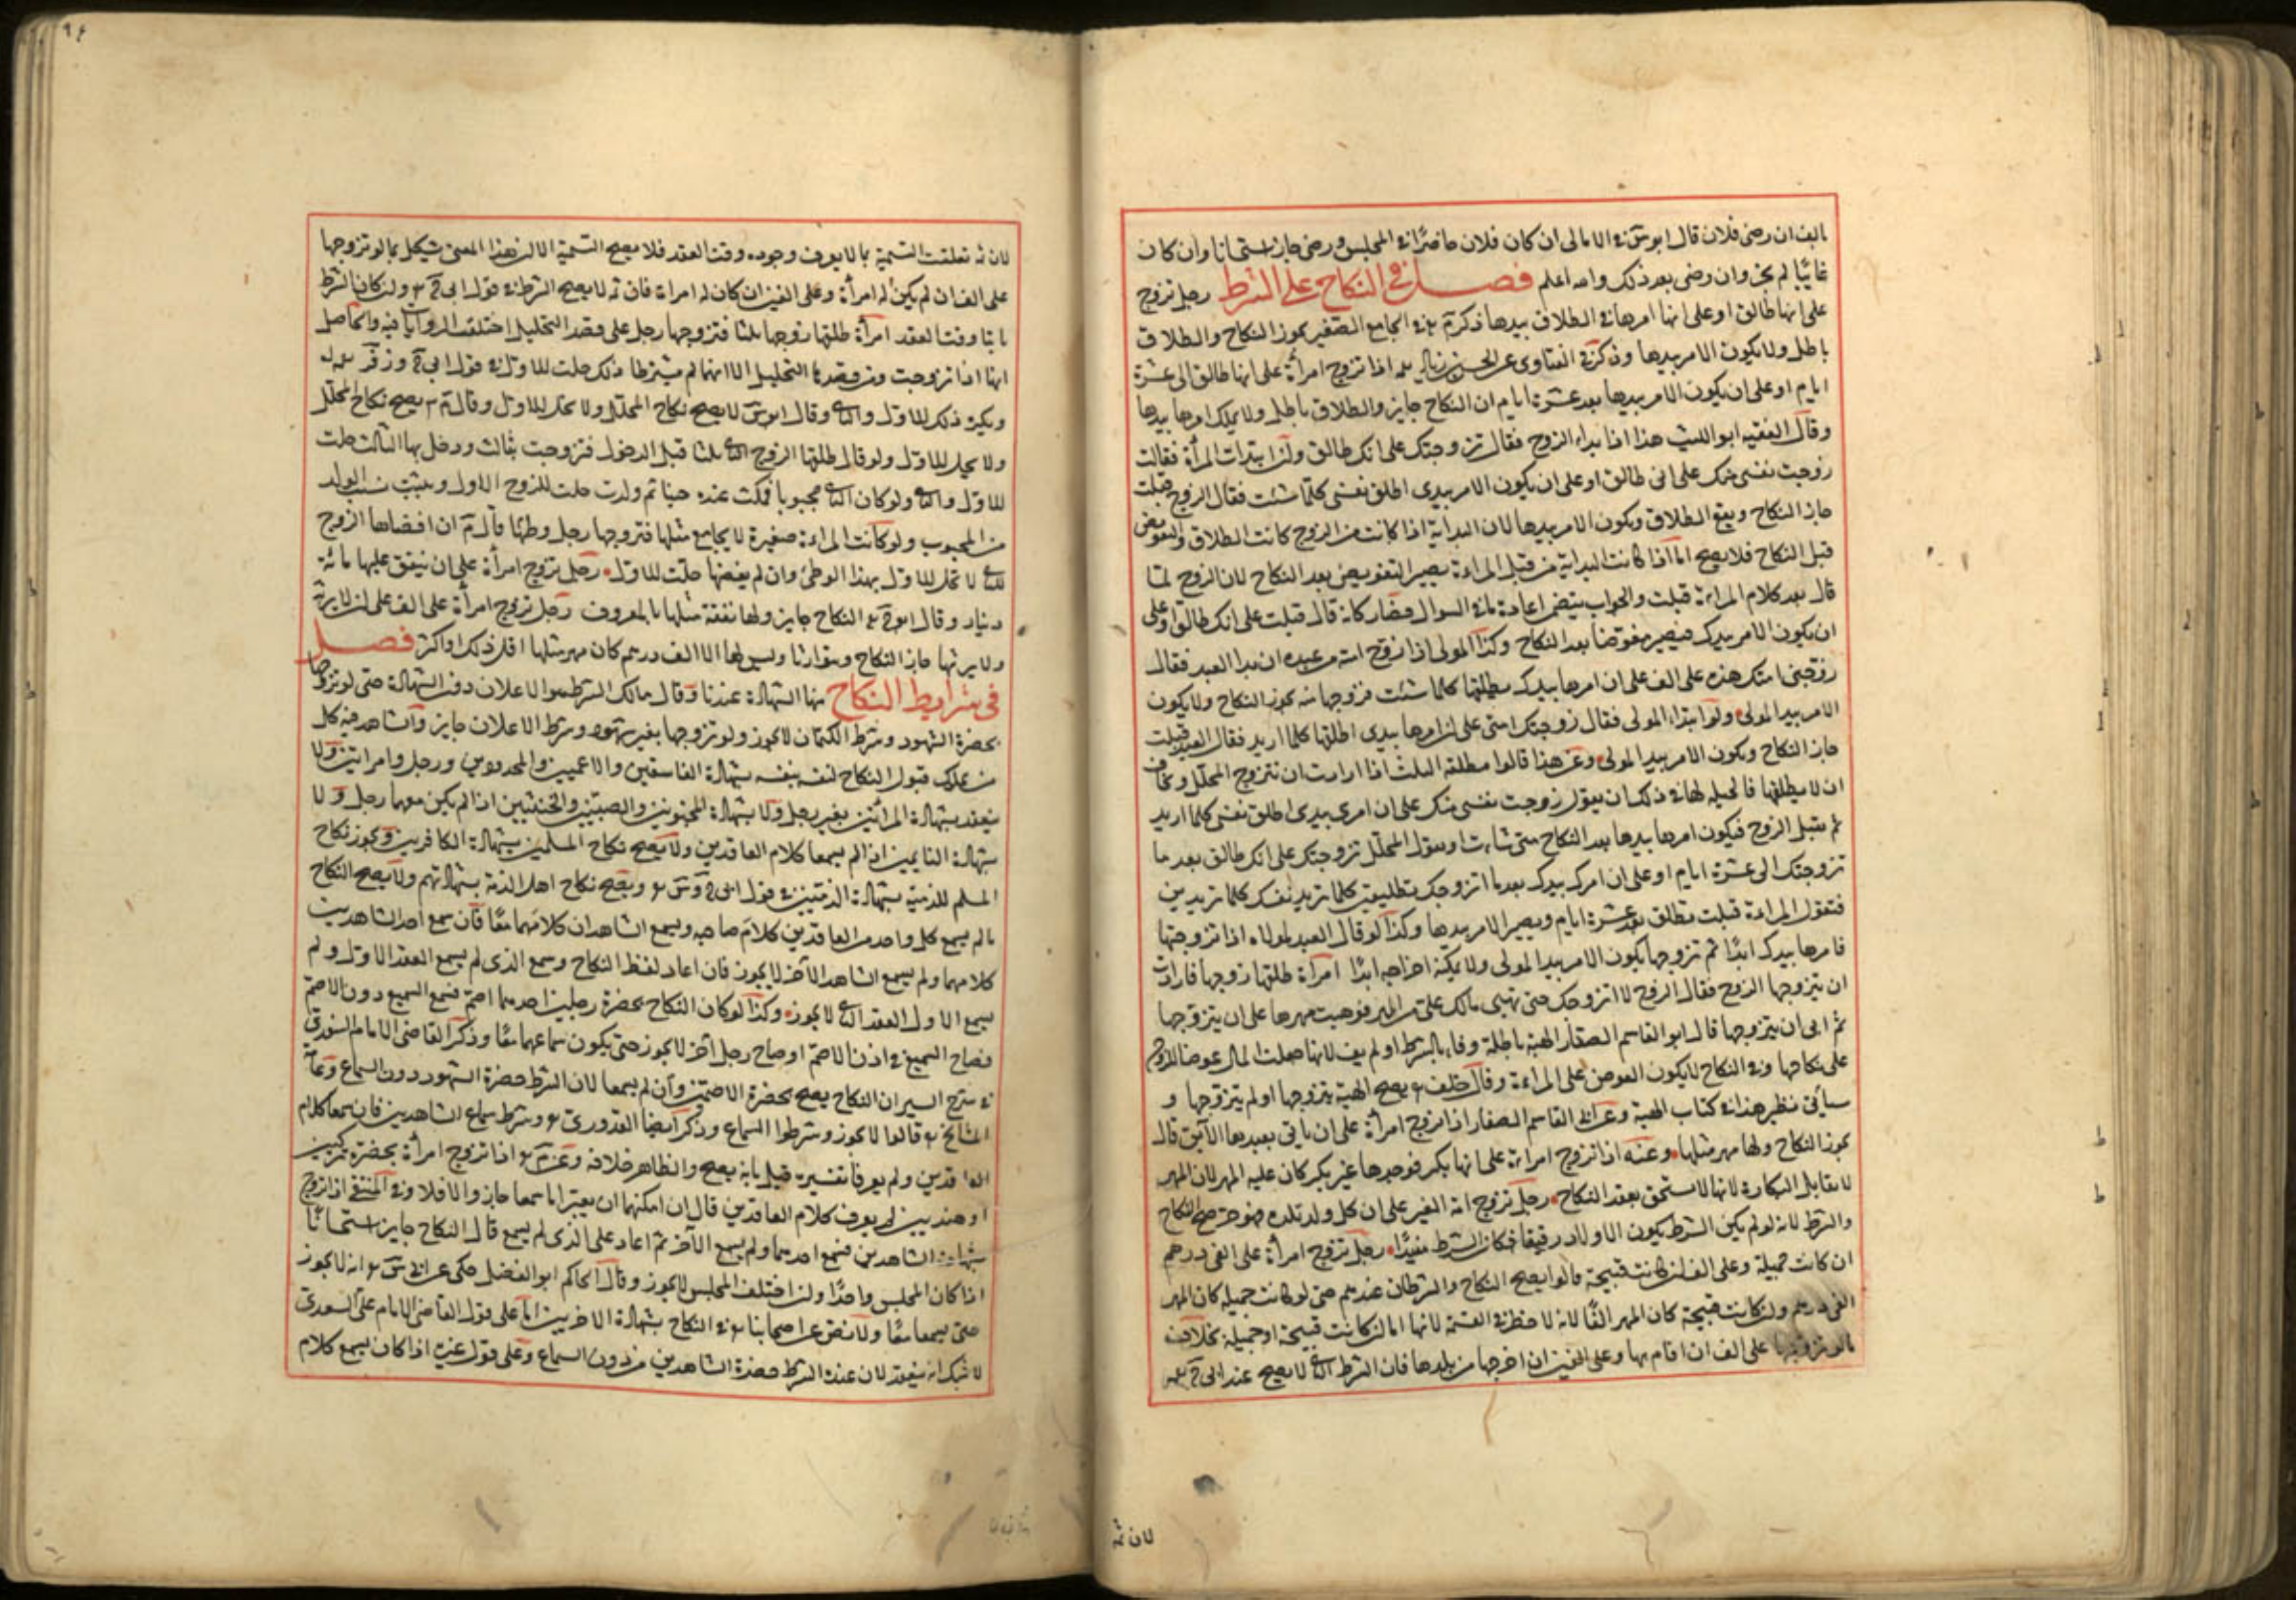 بالف ان رضى فلان قال ابو س في الامالى ان كان فلان حاضرًا في المجلس ورضى جاز استحسانا وان كان
غايبًا لم يجز وان رضى بعد ذلك والله اعلم فصل في النكاح على الشرط رجل تزوج
على انها طالق او على انها امرها في الطلاق بيدها ذكر م في الجامع الصغير يجوز النكاح والطلاق
باطل ولا يكون الامر بيدها وذكر في الفتاوى عن الحسن بن زياد اذا تزوج امرأة على انها طالق الى عشرة
ايام او على ان يكون الامر بيدها بعد عشرة ايام ان النكاح جايز والطلاق باطل ولا يملك امرها بيدها
وقال الفقيه ابو الليث هذا اذا بداء الزوج فقال تزوجتك على انك طالق ولن ابتدات المرأة فقالت
زوجت نفسى منك على انى طالق او على ان يكون الامر بيدى اطلق نفسى كلما شئت فقال الزوج قبلت
جاز النكاح ويقع الطلاق ويكون الامر بيدها لان البداية اذا كانت من الزوج كانت الطلاق والتفويض
قبل النكاح فلا يصح اما اذا كانت البداية من قبل المراءة يصير التفويض بعد النكاح لان الزوج لما
قال بعد كلام المراءة قبلت والجواب يتضمن اعادة ما في السوال فصار كانه قال قبلت على انك طالق او على
ان يكون الامر بيدك فيصير مفوضا بعد النكاح وكذا المولى اذا زوج امته من عبده ان بدا العبد فقال
زوجنى امتك هذه على الف على ان امرها بيدك يطلقها كلما شئت فزوجها منه يجوز النكاح ولا يكون
الامر بيد المولى ولو ابتداء المولى فقال زوجتك امتى على ان امرها بيدى اطلقها كلما اريد فقال العبد قبلت
جاز النكاح ويكون الامر بيد المولى وعن هذا قالوا مطلقة الثلث اذا ارادت ان تتزوج المحلل وتخاف
ان لا يطلقها فالحيلة لها في ذلك ان يقول زوجت نفسى منك على ان امرى بيدى اطلق نفسى كلما اريد
ثم يقبل الزوج فيكون امرها بيدها بعد النكاح متى شاءت او يقول المحلل تزوجتك على انك طالق بعد ما
تزوجتك الى عشرة ايام او على ان امرك بيدك بعد ما اتزوجك بتطليقة كلما تريد نفسك كلما تريدين
فتقول المراءة قبلت تطلق بعد عشرة ايام ويصير الامر بيدها وكذا لو قال العبد لمولاه اذا تزوجتها
فامرها بيدك ابدًا ثم تزوجها يكون الامر بيد المولى ولا يمكنه اخراجه ابدًا امرأة طلقها زوجها فارادت
ان يتزوجها الزوج فقال الزوج لا اتزوجك حتى تهبى مالك على من المهر فوهبت مهرها على ان يتزوجها
ثم ابى ان يتزوجها قال ابو القاسم الصفار الهبة باطلة وفاء بالشرط او لم يف لانها جعلت المال عوضا للزوج
على نكاحها وفي النكاح لا يكون العوض على المراءة وقال خلف يصح الهبة يتزوجها او لم يتزوجها و
سيأتى نظير هذا في كتاب الهبة وعن ابى القاسم الصفار اذا تزوج امرأة على ان ياتى بعبدها الآبق قال
يجوز النكاح ولها مهر مثلها وعنه اذا تزوج امراءة على انها بكر فوجدها غير بكر كان عليه المهر لان المهر
لا يقابل البكارة لانها لا تستحق بعقد النكاح رجل تزوج امة الغير على ان كل ولد تلده فهو حر صح النكاح
والشرط لانه لو لم يكن الشرط يكون الاولاد رقيقا فكان الشرط مفيدًا رجل تزوج امرأة على الفى درهم
ان كانت جميلة وعلى الف ان كانت قبيحة قالوا يصح النكاح والشرطان عندهم حتى لو كانت جميلة كان المهر
الفى درهم ولن كانت قبيحة كان المهر الفًا لانه لا خطر في القسمة لانها اما ان كانت قبيحة او جميلة بخلاف
ما لو تزوجها على الف ان اقام بها وعلى الفين ان اخرجها من بلدها فان الشرط الثانى لا يصح عند ابى ح
لان ثمة
لان ثمة تعلقت التسمية بما لا يعرف وجوده وقت العقد فلا يصح التسمية الا ان هذا المعنى يشكل بما لو تزوجها
على الف ان لم يكن له امرأة وعلى الفين ان كان له امراءة فان ثمة لا يصح الشرط في قول ابى ح ولن كان الشرط
ثابتا وقت العقد امرأة طلقها زوجها ثلثا فتزوجها رجل على قصد التحليل اختلفت الروايات فيه والحاصل
انها اذا تزوجت ومن قصدها التحليل الا انهما لم يشترطا ذلك حلت للاول في قول ابى ح وزفر
ويكره ذلك للاول والثانى وقال ابو س لا يصح نكاح المحلل ولا تحل للاول وقال م يصح نكاح المحلل
ولا يحل للاول ولو قال طلقها الزوج الثانى ثلثا قبل الدخول فتزوجت بثالث ودخل بها الثالث حلت
للاول والثانى ولو كان الثانى مجبوبا فمكث عنده حينا ثم ولدت حلت للزوج الاول ويثبت نسب الولد
من المجبوب ولو كانت المراءة صغيرة لا يجامع مثلها فتزوجها رجل وطئها قال م ان افضاها الزوج
الثانى لا تحل للاول بهذا الوطئ وان لم يفضها حلت للاول رجل تزوج امرأة على ان ينفق عليها مائة
دينار وقال ابو ح النكاح جايز ولها نفقة مثلها بالمعروف رجل تزوج امرأة على الف على ان لا يرثه
ولا يرثها جاز النكاح ويتوارثا وليس لها الا الف درهم كان مهر مثلها اقل من ذلك او اكثر فصل
في شرايط النكاح منها الشهادة عندنا وقال مالك الشرط هو الاعلان دون الشهادة حتى لو تزوجها
بحضرة الشهود وشرط الكتمان لا يجوز ولو تزوجها بغير شهود وشرط الاعلان جايز والشاهد فيه كل
من يملك قبول النكاح لنفسه بنفسه بشهادة الفاسقين والاعميين والمحدودين ورجل وامراتين ولا
ينعقد بشهادة المرأتين بغير رجل ولا بشهادة المجنونين والصبيين والخنثيين اذا لم يكن معهما رجل ولا
بشهادة النايمين اذا لم يسمعا كلام العاقدين ولا يصح نكاح المسلمين بشهادة الكافرين ويجوز نكاح
المسلم للذمية بشهادة الذميين في قول ابى ح و س ويصح نكاح اهل الذمة بشهادتهم ولا يصح النكاح
ما لم يسمع كل واحد من العاقدين كلام صاحبه ويسمع الشاهدان كلامهما معًا فان سمع احد الشاهدين
كلامهما ولم يسمع الشاهد الآخر لا يجوز فان اعاد لفظ النكاح وسمع الذى لم يسمع العقد الاول ولم
يسمع الاول العقد الثانى لا يجوز وكذا لو كان النكاح بحضرة رجلين احدهما اصم فسمع السميع دون الاصم
فصاح السميع في اذن الاصم او صاح رجل آخر لا يجوز حتى يكون سماعهما معًا وذكر القاضى الامام السغدى
في شرح السير ان النكاح يصح بحضرة الاصمين وان لم يسمعا لان الشرط حضرة الشهود دون السماع وعامة
المشايخ قالوا لا يجوز وشرطوا السماع وذكر ايضا القدورى وشرط سماع الشاهدين فان سمعا كلام
العاقدين ولم يعرفا تفسيره قيل بانه يصح والظاهر خلافه وعن م اذا تزوج امرأة بحضرة تركيين
او هنديين لم يعرف كلام العاقدين قال ان امكنهما ان يعبرا ما سمعا جاز والا فلا وفي المنتقى اذا تزوج
بشهادة الشاهدين فسمع احدهما ولم يسمع الآخر ثم اعاد على الذى لم يسمع قال النكاح جايز استحسانًا
اذا كان المجلس واحدًا ولن اختلف المجلس لا يجوز وقال الحاكم ابو الفضل حكى عن ابى س انه لا يجوز
حتى يسمعا معًا ولا نص عن اصحابنا في النكاح بشهادة الاخرسين اما على قول القاضى الامام على السغدى
لا شك انه ينعقد لان عنده الشرط حضرة الشاهدين من دون السماع وعلى قول غيره اذا كان يسمع كلام